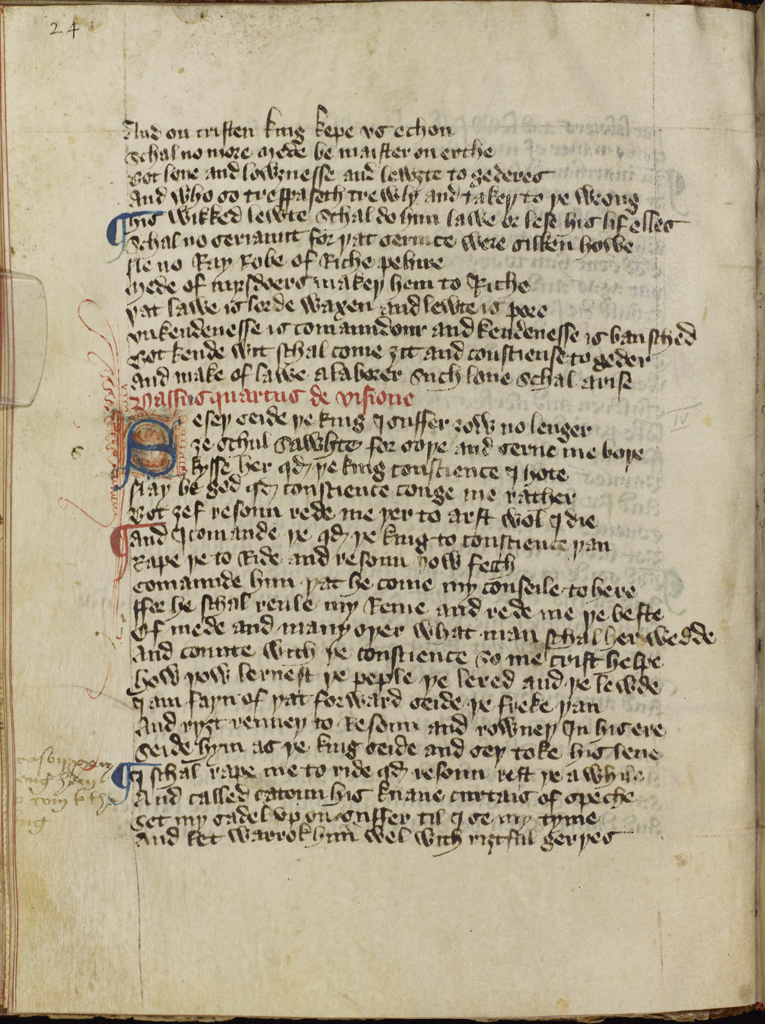 24
And on cristen king kepe vs echon
Schal no more mede be maister on erthe
Bot loue and lownesse and lewte to gederes
And who so trespaseth trewly and takeþ to þe wrong
¶ his wikked lewte schal do him lawe or lese his lif elles
Schal no seriaunt for þat seruice were silken howe
Ne no Ray Robe of Riche pelure
Mede of mysdoers makeþ hem to Riche
þat lawe is lorde waxen and lewte is pore
vnkendenesse is comaundour and kendenesse is banisched
Bot kende wit schal come ȝit and consciense to geder
And make of lawe a laborer such loue schal arise
Passus quartus de visione
Seseþ seide þe king I suffer ȝow no lenger
ȝe schul sawhte for soþe and serue me boþe
kysse her qd þe king conscience I hote
Nay be god qd conscience conge me rather
Bot ȝef resoun rede me þer to arst wol I die
¶ And I comande þe qd þe king to conscience þan
Rape þe to Ride and resoun þow fech
Comaunde him þat he come my conseile to here
ffor he schal reule my Reme and rede me þe beste
Of mede and many oþer what man schal her wedde
And counte with þe conscience so me crist helpe
how þow lernest þe peple þe lered and þe lewde
I am fayn of þat forward seide þe freke þan
And ryȝt renneþ to Resoun and rowneþ In his ere
Seide hym as þe king seide and seþ toke his leue
¶ I schal rape me to ride qd resoun rest þe a while
And called catoun his knaue curtais of speche
Set my sadel vp on suffer til I se my tyme
And let warrok him wel with riȝtful gerþes
IV